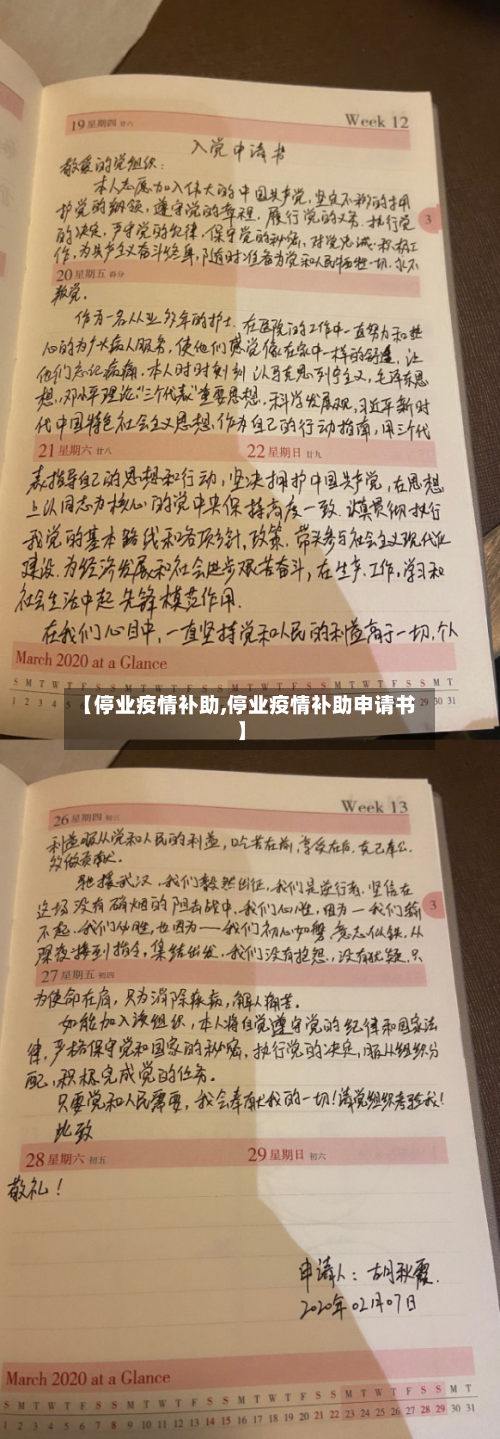 19 星期四 廿六 Week 12
入党申请书
敬爱的党组织:
本人志愿加入伟大的中国共产党,坚定不移的拥
护党的纲领,遵守党的章程,履行党的义务,执行党
的决定,严守党的纪律,保守党的秘密,对党忠诚,积极工
作,为共产主义奋斗终身,随时准备为党和人民牺牲一切,永不
3
20 星期五 春分
叛党。
作为一名从业多年的护士,在医院的工作中一直努力和热
心的为广大病人服务,使他们感觉像在家中一样的舒适,让
他们忘记病痛,本人时时刻刻以马克思列宁主义,毛泽东思
想,邓小平理论,"三个代表"重要思想,科学发展观,习近平新时
代中国特色社会主义思想,作为自己的行动指南,用三个代
21 星期六 廿八 22 星期日 廿九
表指导自己的思想和行动,坚决拥护中国共产党,在思想
上以同志为核心的党中央保持高度一致.认真贯彻执行
我党的基本路线和各项方针,政策,带头参与社会主义现代化
建设.为经济发展和社会进步艰苦奋斗,在生产,工作,学习和
社会生活中起先锋模范作用.
在我们心目中,一直坚持党和人民的利益高于一切,个人
March 2020 at a Glance
S M T W T F S S M T W T F S S M T W T F S S M T W T F S S M T
1 2 3 29 30 31
【停业疫情补助,停业疫情补助申请书
】
26 星期四 初三 Week 13
利益服从党和人民的利益,吃苦在前,享受在后,克己奉公,
多做贡献。
驰援武汉,我们毅然出征,我们是逆行者,坚信在
这场没有硝烟的阻击战中,我们必胜,因为一我们输
不起.我们必胜,也因为——我们初心如磐,意志似铁.从
深夜接到指令,集结出发,我们没有抱怨,没有犹疑,只
3
27 星期五 初四
为使命在肩,只为消除疾病,解人痛苦。
如能加入该组织,本人将自觉遵守党的纪律和国家法
律,严格保守党和国家的秘密,执行党的决定,服从组织分
配,积极完成党的任务。
只要党和人民需要,我会奉献我的一切!请党组织考验我!
此致
28 星期六 初五 29 星期日 初六
敬礼!
申请人:胡秋霞.
2020年02月07日
March 2020 at a Glance
S M T W T F S S M T W T F S S M T W T F S S M T W T F S S M T
1 2 3 4 5 6 7 8 9 10 11 12 13 14 15 16 17 18 19 20 21 22 23 24 25 26 27 28 29 30 31